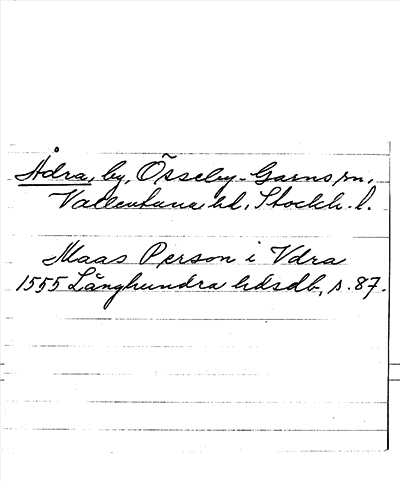 Ådra, by, Össeby-Garns sn,
Vallentuna hd, Stockh. l.
Maas Person i Vdra
1555 Långhundra hdsdb, s. 87.